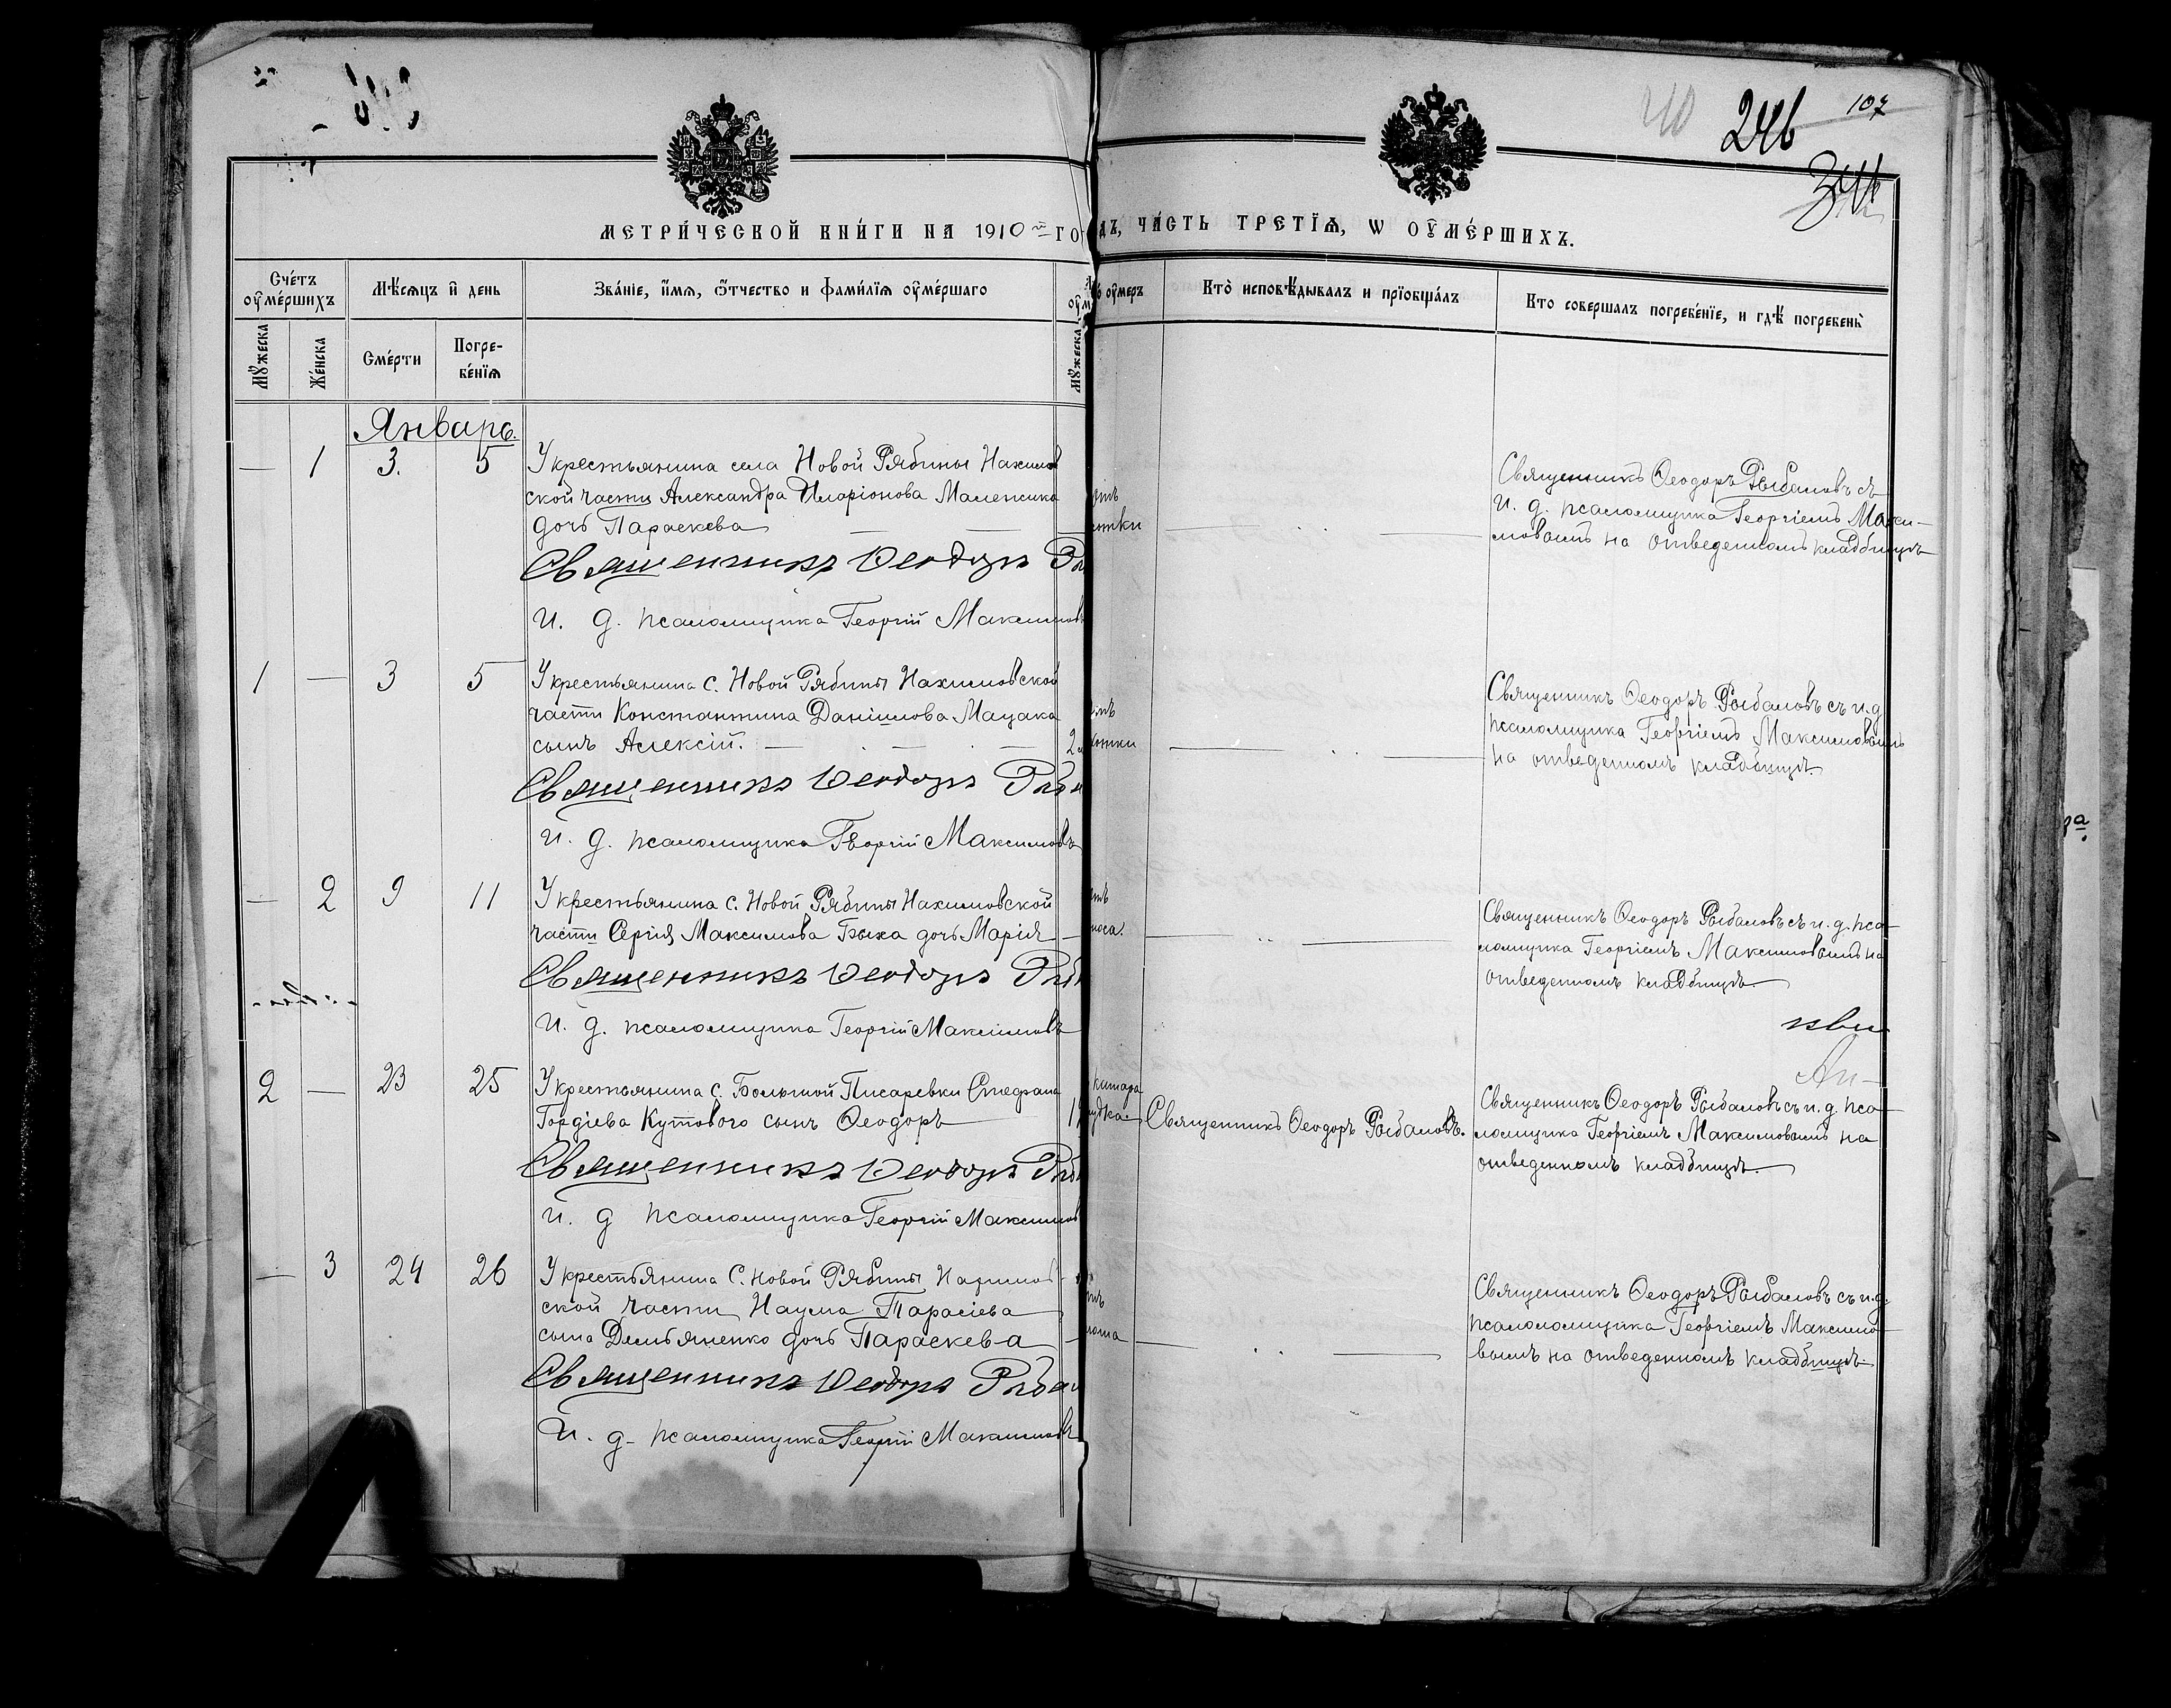 246
107
МЕТРИ́ЧЕСКОЙ КНИ́ГИ НА 1910 ГОДЪ, ЧА́СТЬ ТРЕТІѦ, Ѡ ОУМЕ́РШИХЪ.
Сче́тъ оумершихъ
Мѣ́сяцъ и день
Зва́ніе, и́мя, о́тчество и фами́лія оуме́ршаго
оумеръ
Кто̀ исповѣ́дывалъ и пріобща́лъ
Кто совершалъ погребе́ніе, и гдѣ̀ погребены̀
Мужеска
Женска
Сме́рти
Погре-
бе́нія
Мужеска
Январь.
— 1 3. 5 У крестьянина села Новой Рябины Нахимов
ской части Александра Иларіонова Маленика
дочь Параскева
Священникъ Ѳеодоръ
И. д. псаломщика Георгій Максимовъ
Священникъ Ѳеодоръ Рыбаловъ съ
и. д. псаломщика Георгіемъ Макси-
мовымъ на отведенномъ кладбищѣ
1 — 3 5 У крестьянина с. Новой Рябины Нахимовской
части Константина Даніилова Мацака
сынъ Алексій.
Священникъ Ѳеодоръ
И. д. псаломщика Георгій Максимовъ
Священникъ Ѳеодоръ Рыбаловъ съ и. д
псаломщика Георгіемъ Максимовымъ
на отведенномъ кладбищѣ.
— 2 9 11 У крестьянина с. Новой Рябины Нахимовской
части Сергія Максимова Быка дочь Марія
Священникъ Ѳеодоръ
И. д. псаломщика Георгій Максимовъ
Священникъ Ѳеодоръ Рыбаловъ съ и. д. пса-
ломщика Георгіемъ Максимовымъ на
отведенномъ кладбищѣ.
2 — 23 25 У крестьянина с. Большой Писаревки Стефана
Гордіева Кутового сынъ Ѳеодоръ
Священникъ Ѳеодоръ
И. д псаломщика Георгій Максимов
Священникъ Ѳеодоръ Рыбаловъ.
Священникъ Ѳеодоръ Рыбаловъ съ и. д. пса-
ломщика Георгіемъ Максимовымъ на
отведенномъ кладбищѣ.
— 3 24 26 У крестьянина С. Новой Рябины Нахимов-
ской части Наума Тарасіева
сына Демьяненко дочь Параскева
Священникъ Ѳеодоръ
И. д. псаломщика Георгій Максимовъ
Священникъ Ѳеодоръ Рыбаловъ съ и. д.
псаломомщика Георгіемъ Максимо-
вымъ на отведенномъ кладбищѣ